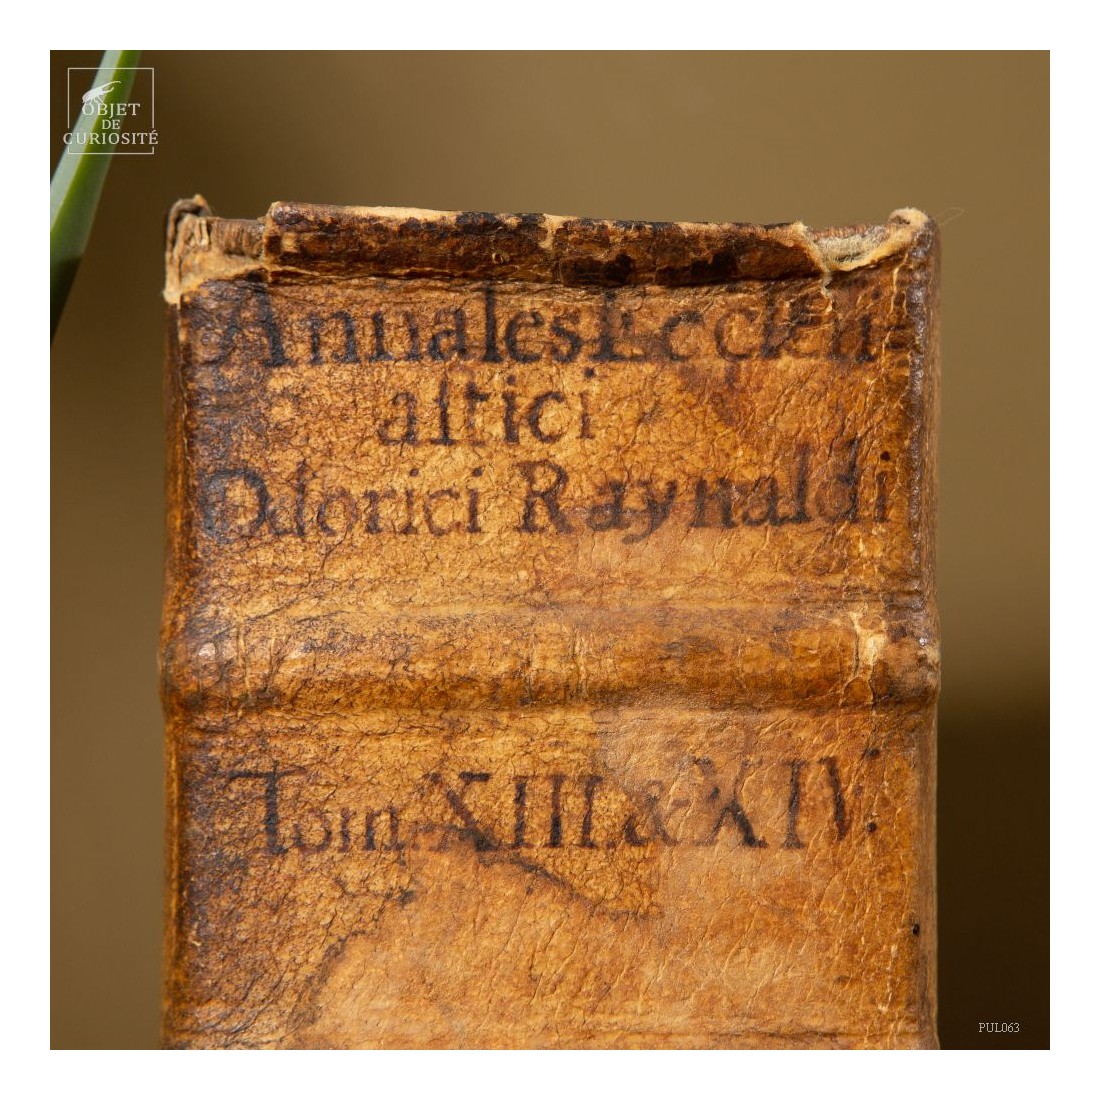 OBJET
DE
CURIOSITÉ
Annales Ecclesi-
aſtici
Odorici Raynaldi
Tom. XIII. & XIV.
PUL063